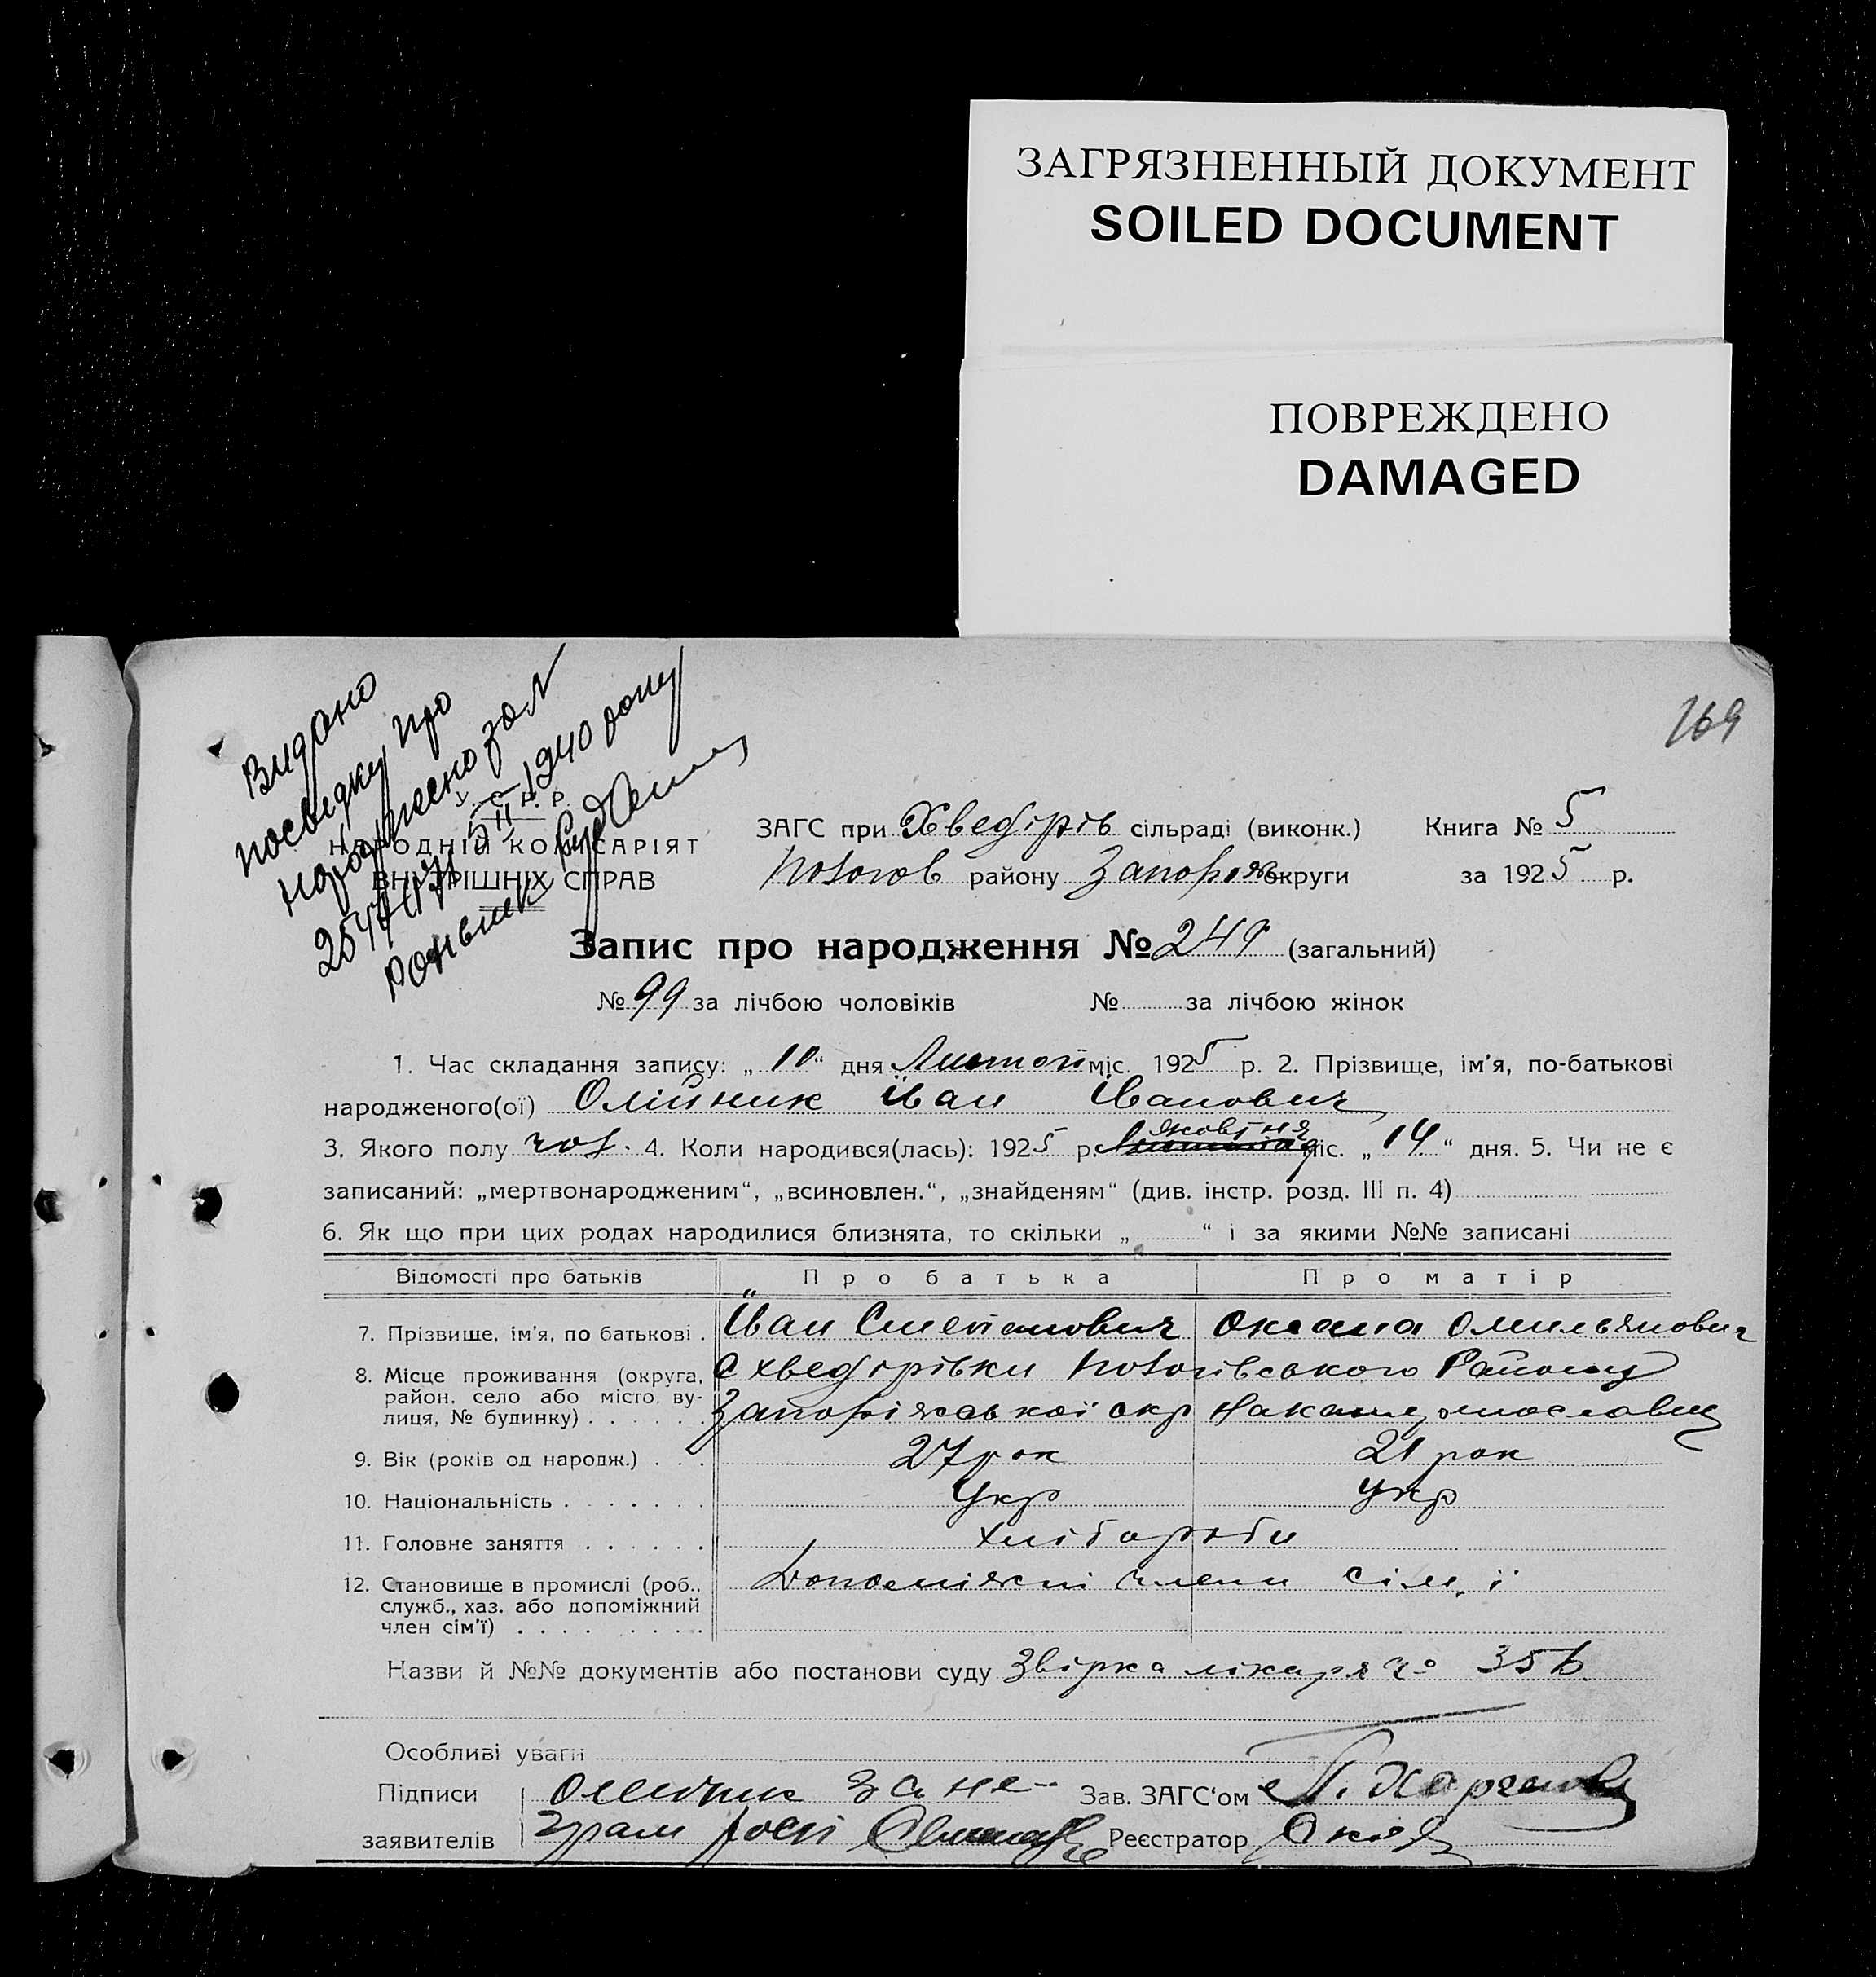 ЗАГРЯЗНЕННЫЙ ДОКУМЕНТ
SOILED DOCUMENT
ПОВРЕЖДЕНО
DAMAGED
169
Видано
посвідку про
народження за №
1940 року
У. С. Р. Р.
НАРОДНІЙ КОМІСАРІЯТ
ВНУТРІШНІХ СПРАВ
ЗАГС при Хведірів сільраді (виконк.) Книга № 5
району Запоріж округи за 1925 р.
Запис про народження № 249 (загальний)
№ 99 за лічбою чоловіків № за лічбою жінок
1. Час складання запису: „ 10 “ дня Листоп міс. 1925 р. 2. Прізвище, ім'я, по-батькові
народженого(ої) Олійник Іван Іванович
3. Якого полу чол. 4. Коли народився(лась): 1925 р. жовтня міс. „ 14 “ дня. 5. Чи не є
записаний: „мертвонародженим“, „всиновлен.“, „знайденям“ (див. інстр. розд. III п. 4)
6. Як що при цих родах народилися близнята, то скільки „ “ і за якими №№ записані
Відомості про батьків Про батька Про матір
7. Прізвище, ім'я, по батькові . Іван Степанович Оксана Омильянович
8. Місце проживання (округа, с Хведірівки Району
район, село або місто, ву-
лиця, № будинку) . . . . . . Запоріжської окр
9. Вік (років од народж.) . . . 27 рок 21 рок
10. Національність . . . . . . . Укр Укр
11. Головне заняття . . . . . . Хлібороби
12. Становище в промислі (роб., Допоміжні члени сім,ї
служб., хаз. або допоміжний
член сім'ї) . . . . . . . . .
Назви й №№ документів або постанови суду Звірка лікаря
Особливі уваги
Підписи Олійник за не- Зав. ЗАГС'ом
заявителів Реєстратор